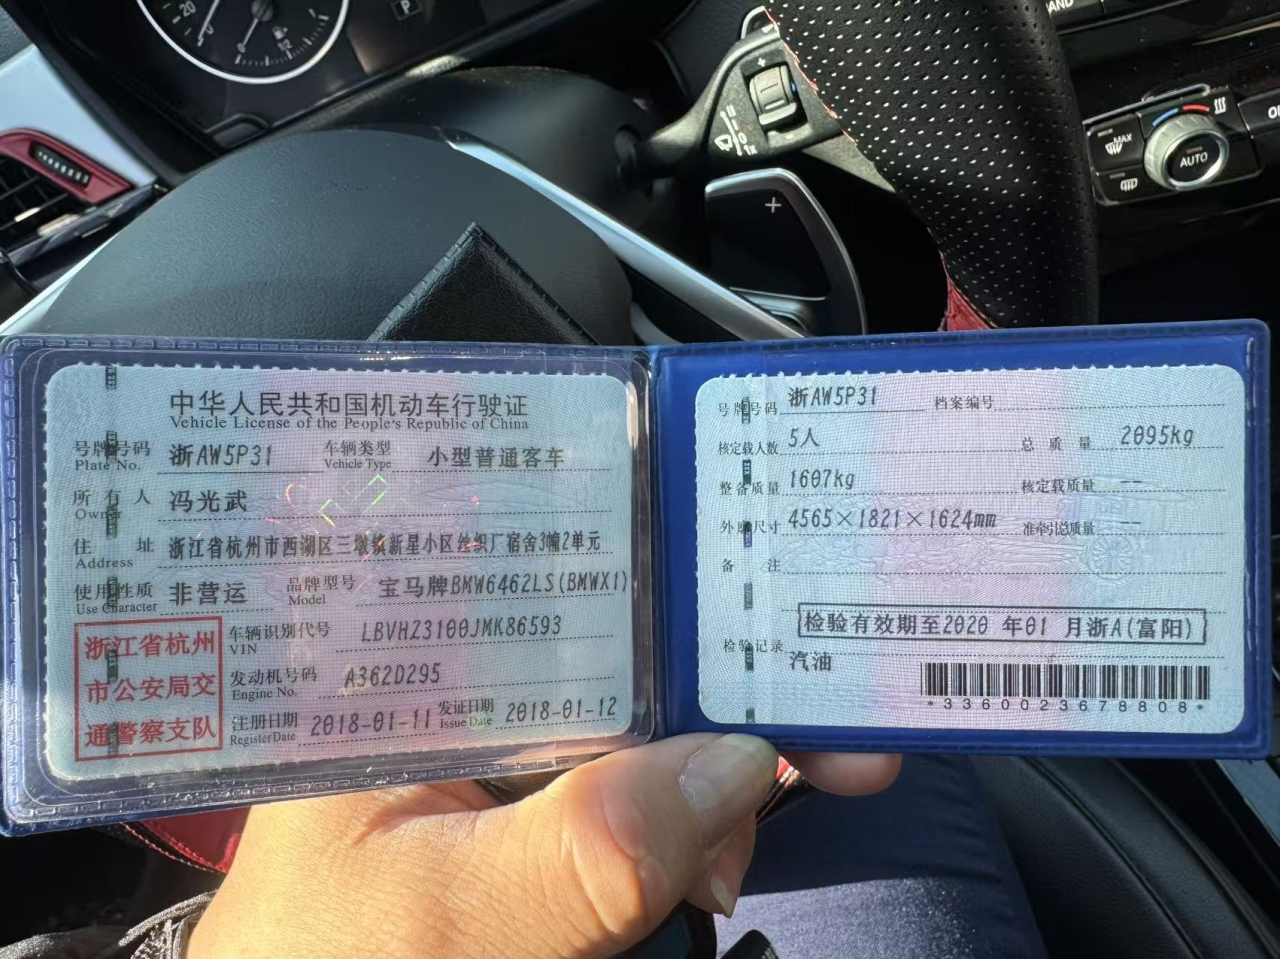 20
1/2
P
AND
MAX
AUTO
1x
中华人民共和国机动车行驶证
Vehicle License of the People's Republic of China
号牌号码 浙AW5P31 车辆类型 小型普通客车
Plate No. Vehicle Type
所有人 冯光武
Owner
住址 浙江省杭州市西湖区三墩镇新星小区丝织厂宿舍3幢2单元
Address
使用性质 非营运 品牌型号 宝马牌BMW6462LS(BMWX1)
Use Character Model
浙江省杭州
市公安局交
通警察支队
车辆识别代号 LBVHZ3100JMK86593
VIN
发动机号码 A362D295
Engine No.
注册日期 2018-01-11 发证日期 2018-01-12
Register Date Issue Date
号牌号码 浙AW5P31 档案编号
核定载人数 5人 总质量 2095kg
整备质量 1607kg 核定载质量 --
外廓尺寸 4565×1821×1624mm 准牵引总质量 --
备注
检验有效期至2020 年01 月浙A(富阳)
检验记录
汽油
*3360023678808*